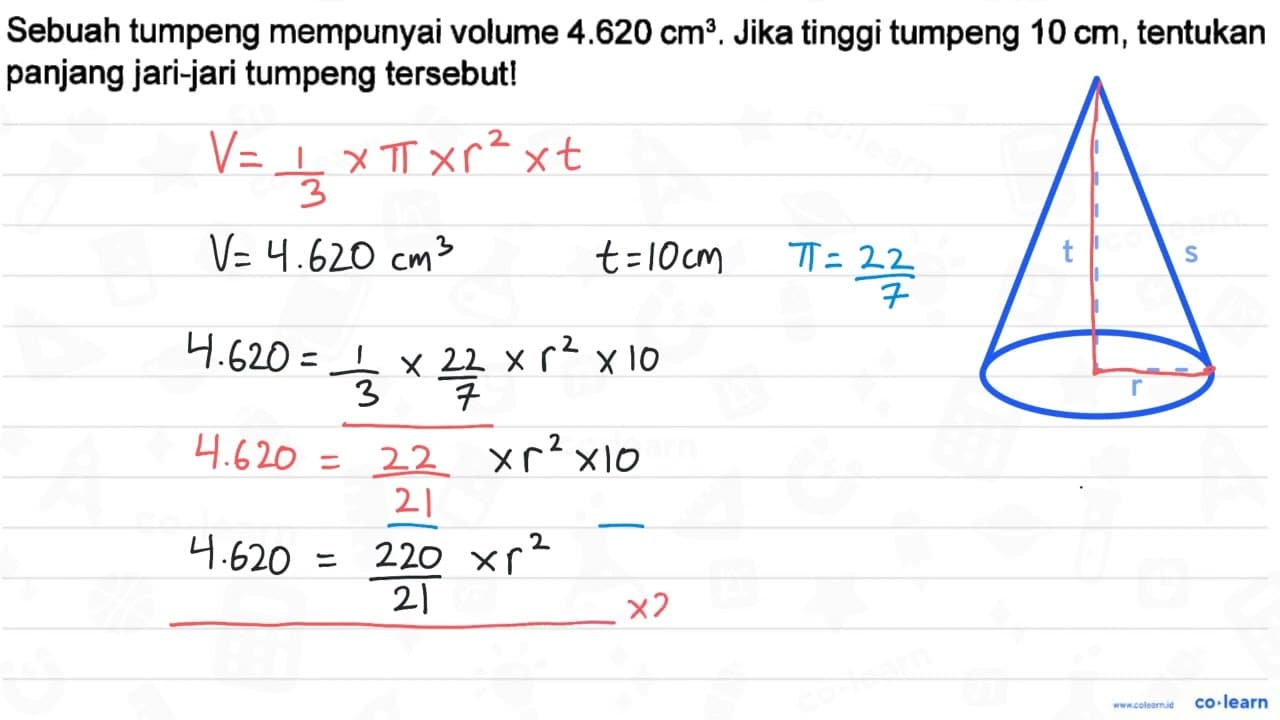 Sebuah tumpeng mempunyai volume 4.620 cm³. Jika tinggi tumpeng 10 cm, tentukan
panjang jari-jari tumpeng tersebut!
V = 1/3 × π × r² × t
V = 4.620 cm³ t = 10 cm π = 22/7
t s
4.620 = 1/3 × 22/7 × r² × 10
r
4.620 = 22/21 × r² × 10
4.620 = 220/21 × r²
×2
www.colearn.id co·learn